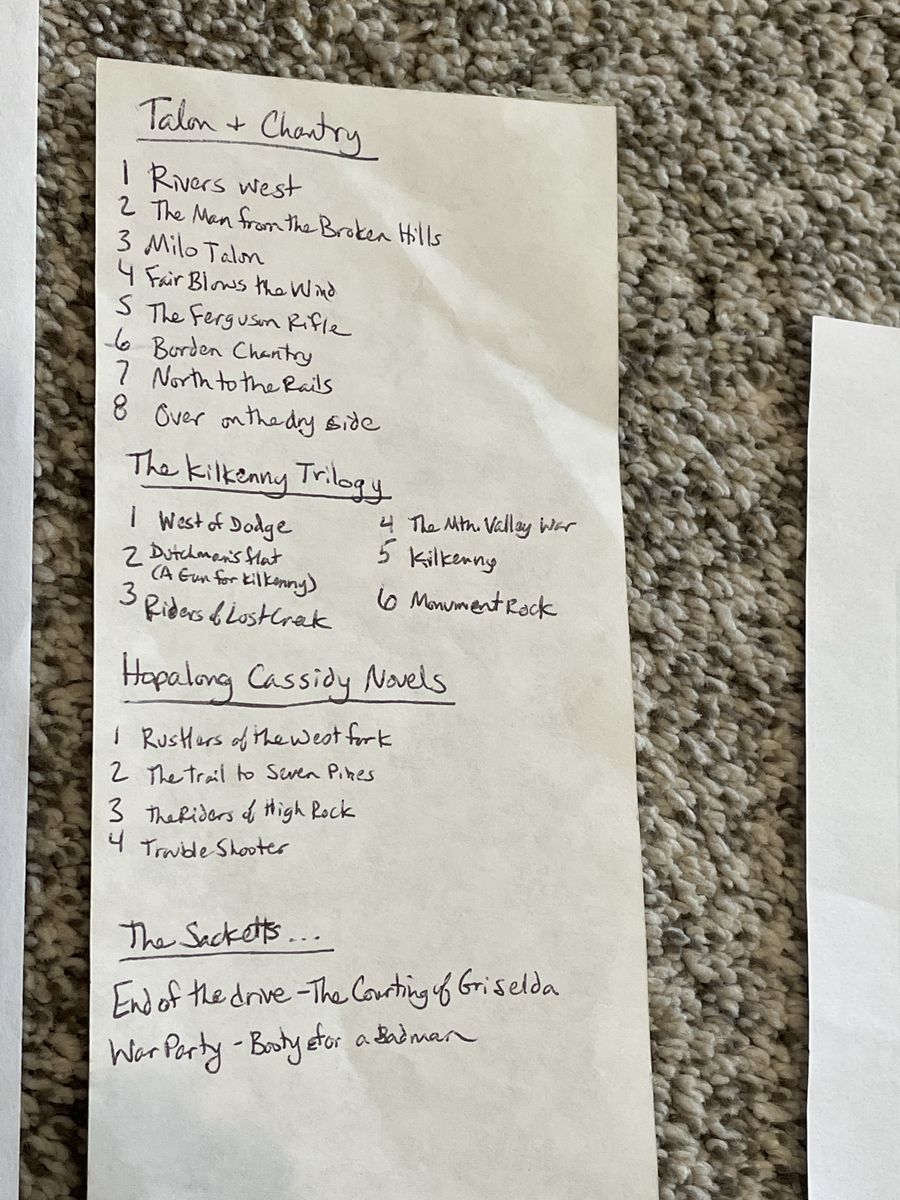 Talon + Chantry
1 Rivers West
2 The Man from the Broken Hills
3 Milo Talon
4 Fair Blows the Wind
5 The Ferguson Rifle
6 Borden Chantry
7 North to the Rails
8 Over on the dry side
The Kilkenny Trilogy
1 West of Dodge
2 Dutchman's flat
(A Gun for Kilkenny)
3 Riders of Lost Creek
4 The Mtn. Valley War
5 Kilkenny
6 Monument Rock
Hopalong Cassidy Novels
1 Rustlers of the West fork
2 The Trail to Seven Pines
3 The Riders of High Rock
4 Trouble Shooter
The Sacketts...
End of the drive - The Courting of Griselda
War Party - Booty for a Badman